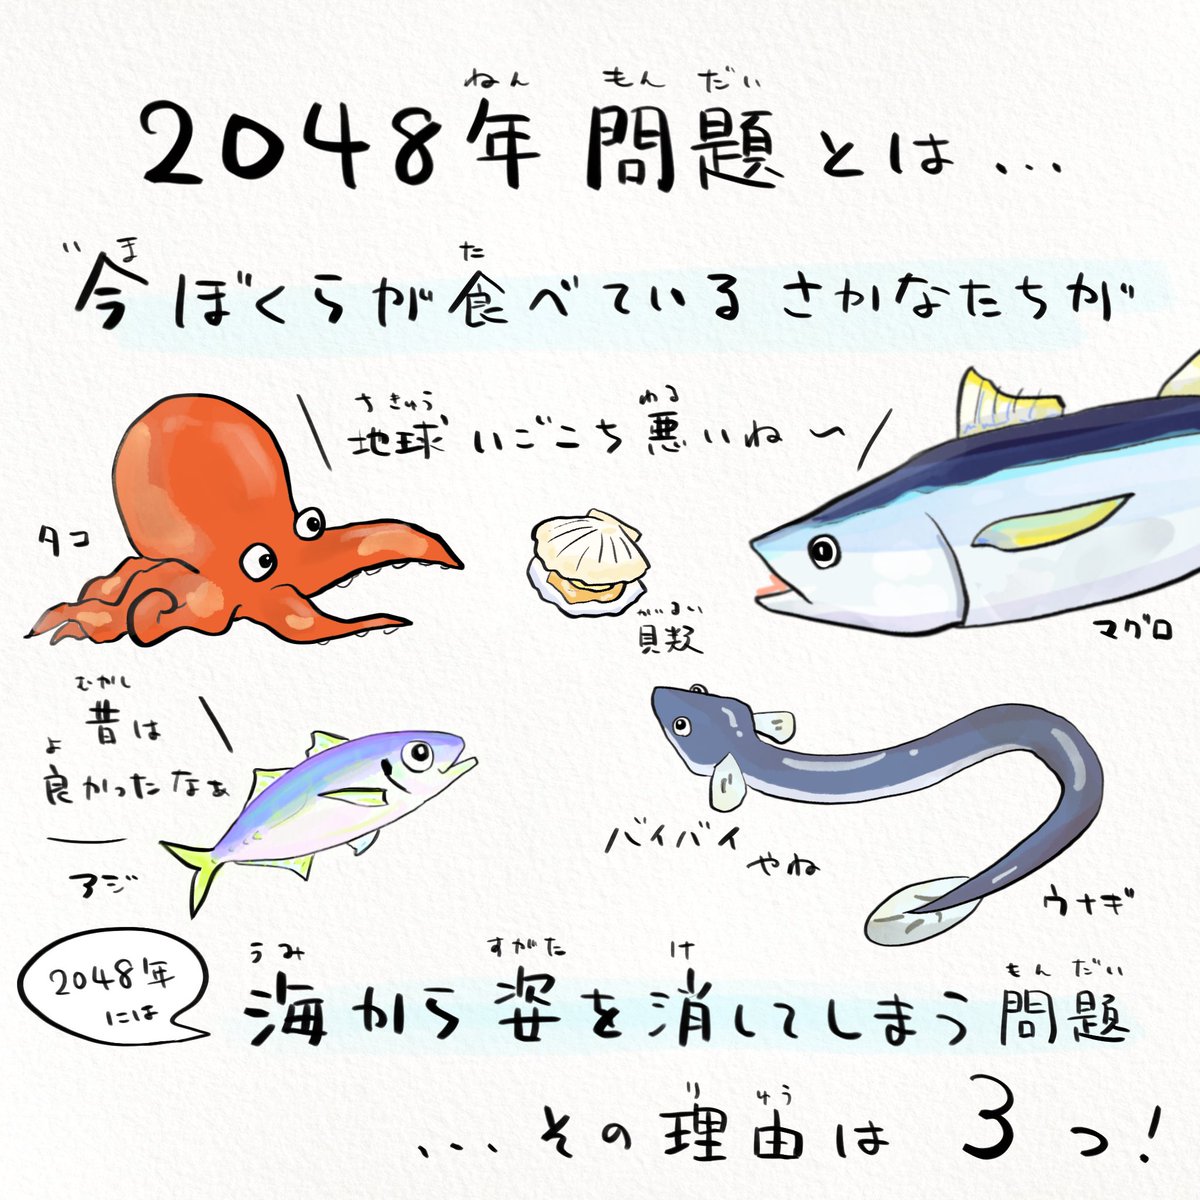 ねん もん だい
2048年問題とは...
いま た
"今ぼくらが食べているさかなたちが
ちきゅう わる
地球いごこち悪いね〜
タコ
がいるい
貝類
マグロ
むかし
昔は
よ
良かったなぁ
アジ
バイバイ
やね
ウナギ
2048年
には
うみ すがた け もん だい
海から姿を消してしまう問題
り ゆう
...その理由は3つ!